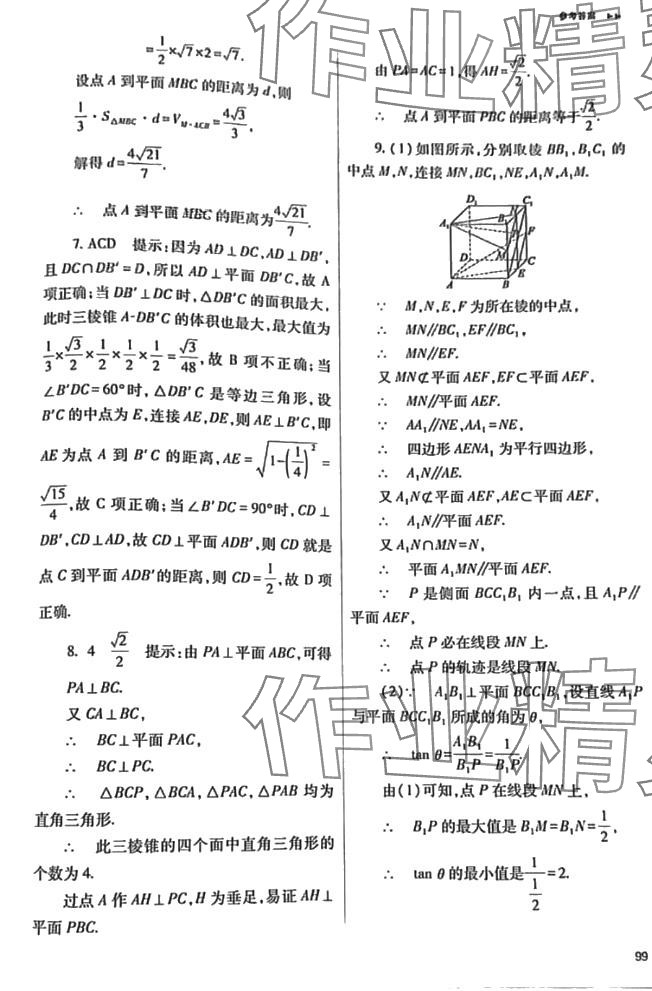 参考答案
=\frac{1}{2}×√7×2=√7.
设点 A 到平面 MBC 的距离为 d,则
\frac{1}{3}·S△MBC·d=V_{M-ACB}=\frac{4√3}{3},
解得 d=\frac{4√21}{7}.
∴ 点 A 到平面 MBC 的距离为\frac{4√21}{7}.
7. ACD 提示:因为 AD⊥DC,AD⊥DB′,
且 DC∩DB′=D,所以 AD⊥平面 DB′C,故 A
项正确;当 DB′⊥DC 时,△DB′C 的面积最大,
此时三棱锥 A-DB′C 的体积也最大,最大值为
\frac{1}{3}×\frac{√3}{2}×\frac{1}{2}×\frac{1}{2}×\frac{1}{2}=\frac{√3}{48},故 B 项不正确;当
∠B′DC=60°时,△DB′C 是等边三角形,设
B′C 的中点为 E,连接 AE,DE,则 AE⊥B′C,即
AE 为点 A 到 B′C 的距离,AE=\sqrt{1-(\frac{1}{4})^2}=
\frac{√15}{4},故 C 项正确;当∠B′DC=90°时,CD⊥
DB′,CD⊥AD,故 CD⊥平面 ADB′,则 CD 就是
点 C 到平面 ADB′的距离,则 CD=\frac{1}{2},故 D 项
正确.
8. 4 \frac{√2}{2} 提示:由 PA⊥平面 ABC,可得
PA⊥BC.
又 CA⊥BC,
∴ BC⊥平面 PAC,
∴ BC⊥PC.
∴ △BCP,△BCA,△PAC,△PAB 均为
直角三角形.
∴ 此三棱锥的四个面中直角三角形的
个数为 4.
过点 A 作 AH⊥PC,H 为垂足,易证 AH⊥
平面 PBC.
由 PA=AC=1,得 AH=\frac{√2}{2}.
∴ 点 A 到平面 PBC 的距离等于\frac{√2}{2}.
9. (1)如图所示,分别取棱 BB₁,B₁C₁ 的
中点 M,N,连接 MN,BC₁,NE,A₁N,A₁M.
D₁ N C₁
A₁ B₁
P F
M
D C
E
A B
∵ M,N,E,F 为所在棱的中点,
∴ MN∥BC₁,EF∥BC₁,
∴ MN∥EF.
又 MN⊄平面 AEF,EF⊂平面 AEF,
∴ MN∥平面 AEF.
∵ AA₁∥NE,AA₁=NE,
∴ 四边形 AENA₁ 为平行四边形,
∴ A₁N∥AE.
又 A₁N⊄平面 AEF,AE⊂平面 AEF,
∴ A₁N∥平面 AEF.
又 A₁N∩MN=N,
∴ 平面 A₁MN∥平面 AEF.
∵ P 是侧面 BCC₁B₁ 内一点,且 A₁P∥
平面 AEF,
∴ 点 P 必在线段 MN 上.
∴ 点 P 的轨迹是线段 MN.
(2)∵ A₁B₁⊥平面 BCC₁B₁,设直线 A₁P
与平面 BCC₁B₁ 所成的角为 θ,
∴ tan θ=\frac{A₁B₁}{B₁P}=\frac{1}{B₁P}.
由(1)可知,点 P 在线段 MN 上,
∴ B₁P 的最大值是 B₁M=B₁N=\frac{1}{2},
∴ tan θ 的最小值是\frac{1}{\frac{1}{2}}=2.
99
作业精灵
作业精灵